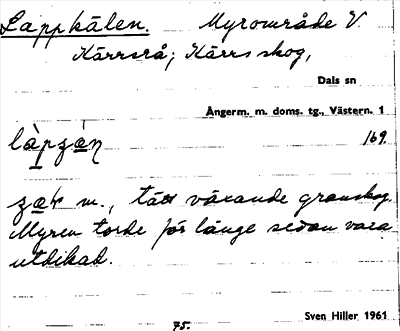 Lappkälen. Myrområde V
Kärrsrå; Kärrs skog,
Dals sn
Ångerm. m. doms. tg., Västern. 1
169.
m., tätt växande granskog.
Myren torde för länge sedan vara
utdikad.
75.
Sven Hiller 1961